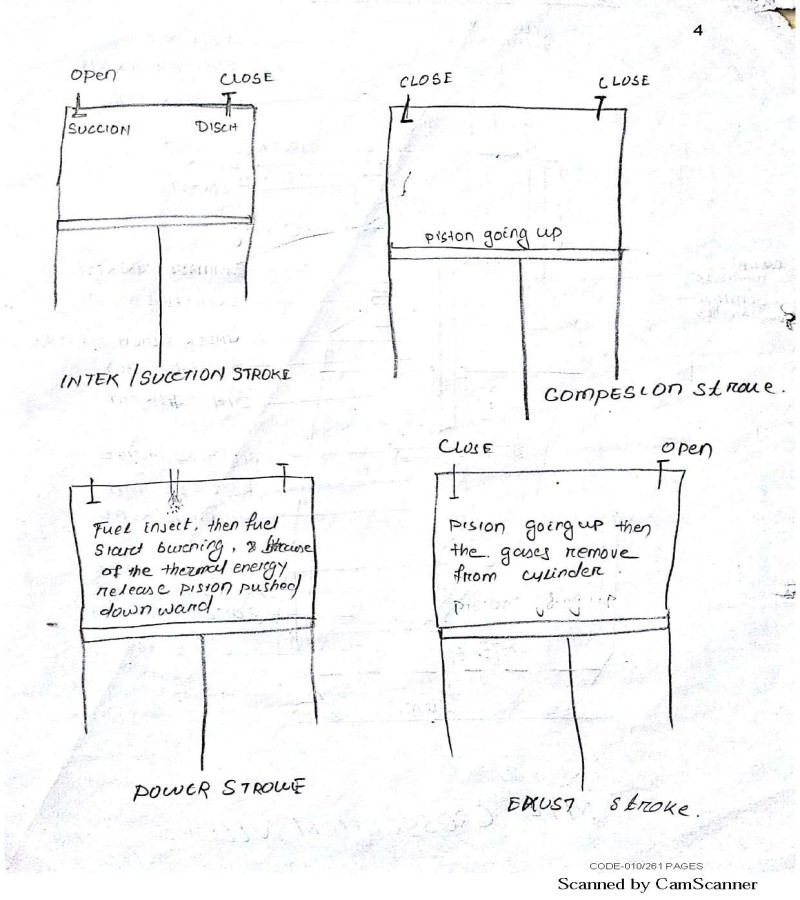 4
Open CLOSE
SUCCION DISCH
INTEK / SUCCTION STROKE
CLOSE CLOSE
piston going up
COMPESION Stroke.
Fuel insect, then fuel
start burning, &
of the thermal energy
release piston pushed
down ward.
POWER STROKE
CLOSE Open
piston going up then
the gases remove
from cylinder
EXUST stroke.
CODE-010/261 PAGES
Scanned by CamScanner